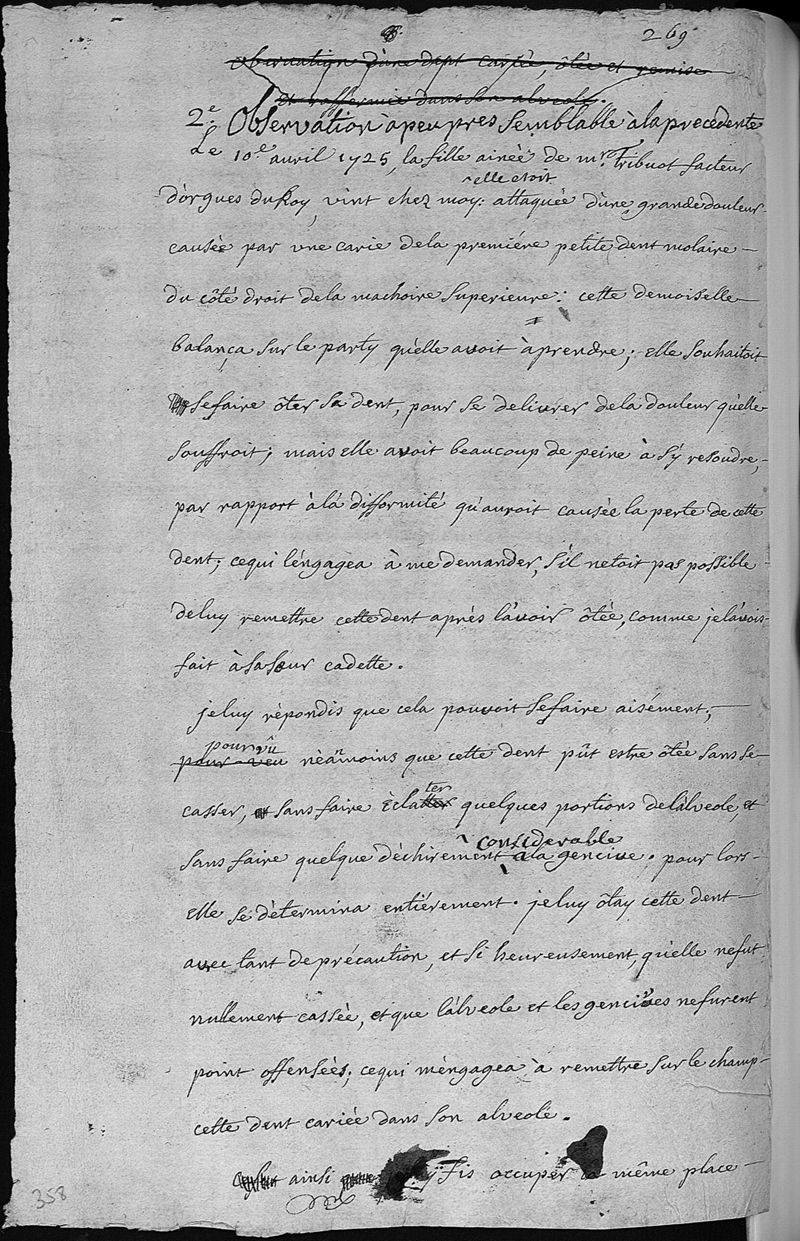 269
observation d'une dent cariée, ôtée et remise
et raffermie dans son alveole.
2.e Observation àpeuprès semblable à la precedente
Le 10.e avril 1725, la fille ainéé de mr. Tribuot facteur
elle etoit
d'orgues du Roy, vint chez moy: attaquée d'une grande douleur
causée par une carie dela premiére petite dent molaire
du côté droit dela machoire superieure: cette demoiselle
balança sur le party qu'elle avoit àprendre; elle souhaitoit
sefaire ôter sa dent, pour se delivrer dela douleur qu'elle
souffroit; mais elle avoit beaucoup de peine à s'y resoudre,
par rapport à la difformité qu'auroit causée la perte de cette
dent; cequi l'engagea à me demander, s'il netoit pas possible
deluy remettre cette dent aprés l'avoir ôtée, comme je l'avois
fait à sa sœur cadette.
jeluy répondis que cela pouvoit sefaire aisément;
pourvû
pour veu néãmoins que cette dent pût estre ôtée sans se
ter
casser, et sans faire éclatter quelques portions de l'alveole, et
considerable
sans faire quelque déchirement à la gencive. pour lors
elle se détermina entiérement. jeluy ôtay cette dent
avec tant de précaution, et si heureusement, qu'elle nefut
nullement cassée, et que l'alveole et les gencives nefurent
point offensées; cequi m'engagea à remettre sur le champ
cette dent cariée dans son alveole.
ainsi fis occuper la même place
358